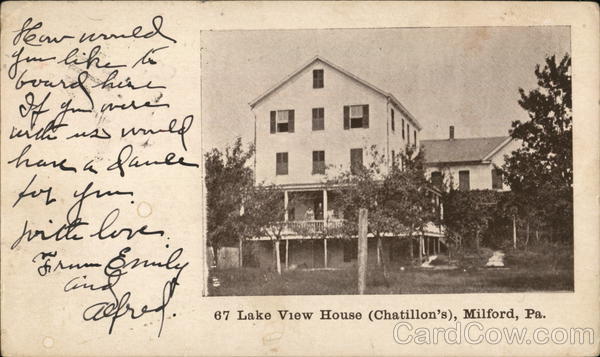 How would
you like to
board here
If you were
with us would
have a dance
for you.
With love.
From Emily
and
Alfred.
67 Lake View House (Chatillon's), Milford, Pa.
CardCow.com